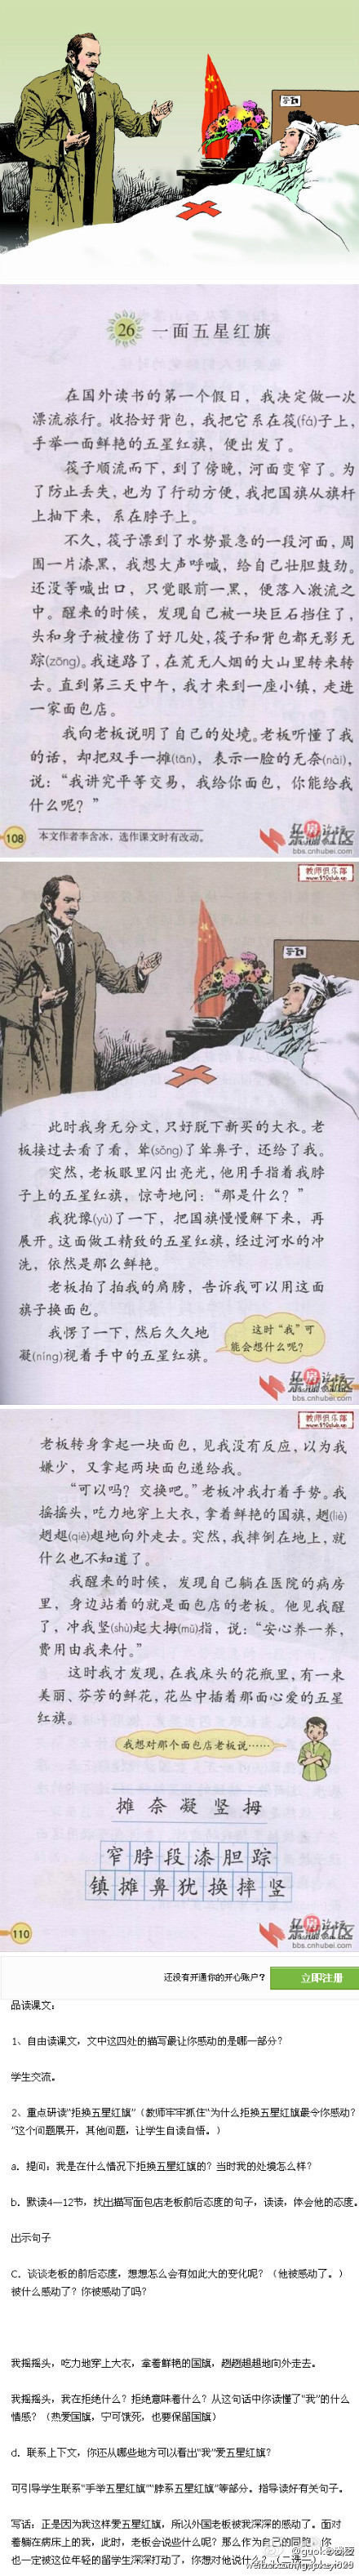 26 一面五星红旗
在国外读书的第一个假日，我决定做一次
漂流旅行。收拾好背包，我把它系在筏(fá)子上，
手举一面鲜艳的五星红旗，便出发了。
筏子顺流而下，到了傍晚，河面变窄了。为
了防止丢失，也为了行动方便，我把国旗从旗杆
上抽下来，系在脖子上。
不久，筏子漂到了水势最急的一段河面，周
围一片漆黑，我想大声呼喊，给自己壮胆鼓劲。
还没等喊出口，只觉眼前一黑，便落入激流之
中。醒来的时候，发现自己被一块巨石挡住了，
头和身子被撞伤了好几处，筏子和背包都无影无
踪(zōng)。我迷路了，在荒无人烟的大山里转来转
去。直到第三天中午，我才来到一座小镇，走进
一家面包店。
我向老板说明了自己的处境。老板听懂了我
的话，却把双手一摊(tān)，表示一脸的无奈(nài)，
说：“我讲究平等交易，我给你面包，你能给我
什么呢？”
108
本文作者李含冰，选作课文时有改动。
bbs.cnhubei.com
教师俱乐部
此时我身无分文，只好脱下新买的大衣。老
板接过去看了看，耸(sǒng)了耸鼻子，还给了我。
突然，老板眼里闪出亮光，他用手指着我脖
子上的五星红旗，惊奇地问：“那是什么？”
我犹豫(yù)了一下，把国旗慢慢解下来，再
展开。这面做工精致的五星红旗，经过河水的冲
洗，依然是那么鲜艳。
老板拍了拍我的肩膀，告诉我可以用这面
旗子换面包。
我愣了一下，然后久久地
凝(níng)视着手中的五星红旗。
这时“我”可
能会想什么呢？
bbs.cnhubei.com
教师俱乐部
老板转身拿起一块面包，见我没有反应，以为我
嫌少，又拿起两块面包递给我。
“可以吗？交换吧。”老板冲我打着手势。我
摇摇头，吃力地穿上大衣，拿着鲜艳的国旗，趔(liè)
趔趄(qiè)趄地向外走去。突然，我摔倒在地上，就
什么也不知道了。
我醒来的时候，发现自己躺在医院的病房
里，身边站着的就是面包店的老板。他见我醒
了，冲我竖(shù)起大拇(mǔ)指，说：“安心养一养，
费用由我来付。”
这时我才发现，在我床头的花瓶里，有一束
美丽、芬芳的鲜花，花丛中插着那面心爱的五星
红旗。
我想对那个面包店老板说……
摊 奈 凝 竖 拇
窄 脖 段 漆 胆 踪
镇 摊 鼻 犹 换 摔 竖
110
bbs.cnhubei.com
还没有开通你的开心账户？ 立即注册
品读课文：
1、自由读课文，文中这四处的描写最让你感动的是哪一部分？
学生交流。
2、重点研读"拒换五星红旗"（教师牢牢抓住"为什么拒换五星红旗最令你感动?
"这个问题展开，其他问题，让学生自读自悟。）
a．提问：我是在什么情况下拒换五星红旗的？当时我的处境怎么样？
b．默读4—12节，找出描写面包店老板前后态度的句子，读读，体会他的态度。
出示句子
C．谈谈老板的前后态度，想想怎么会有如此大的变化呢？（他被感动了。）
被什么感动了？你被感动了吗？
我摇摇头，吃力地穿上大衣，拿着鲜艳的国旗，趔趔趄趄地向外走去。
我摇摇头，我在拒绝什么？拒绝意味着什么？从这句话中你读懂了"我"的什么
情感？（热爱国旗，宁可饿死，也要保留国旗）
d．联系上下文，你还从哪些地方可以看出"我"爱五星红旗？
可引导学生联系"手举五星红旗""脖系五星红旗"等部分。指导读好有关句子。
写话：正是因为我这样爱五星红旗，所以外国老板被我深深的感动了。面对
着躺在病床上的我，此时，老板会说些什么呢？那么作为自己的同胞，你
也一定被这位年轻的留学生深深打动了，你想对他说什么？（二选一）